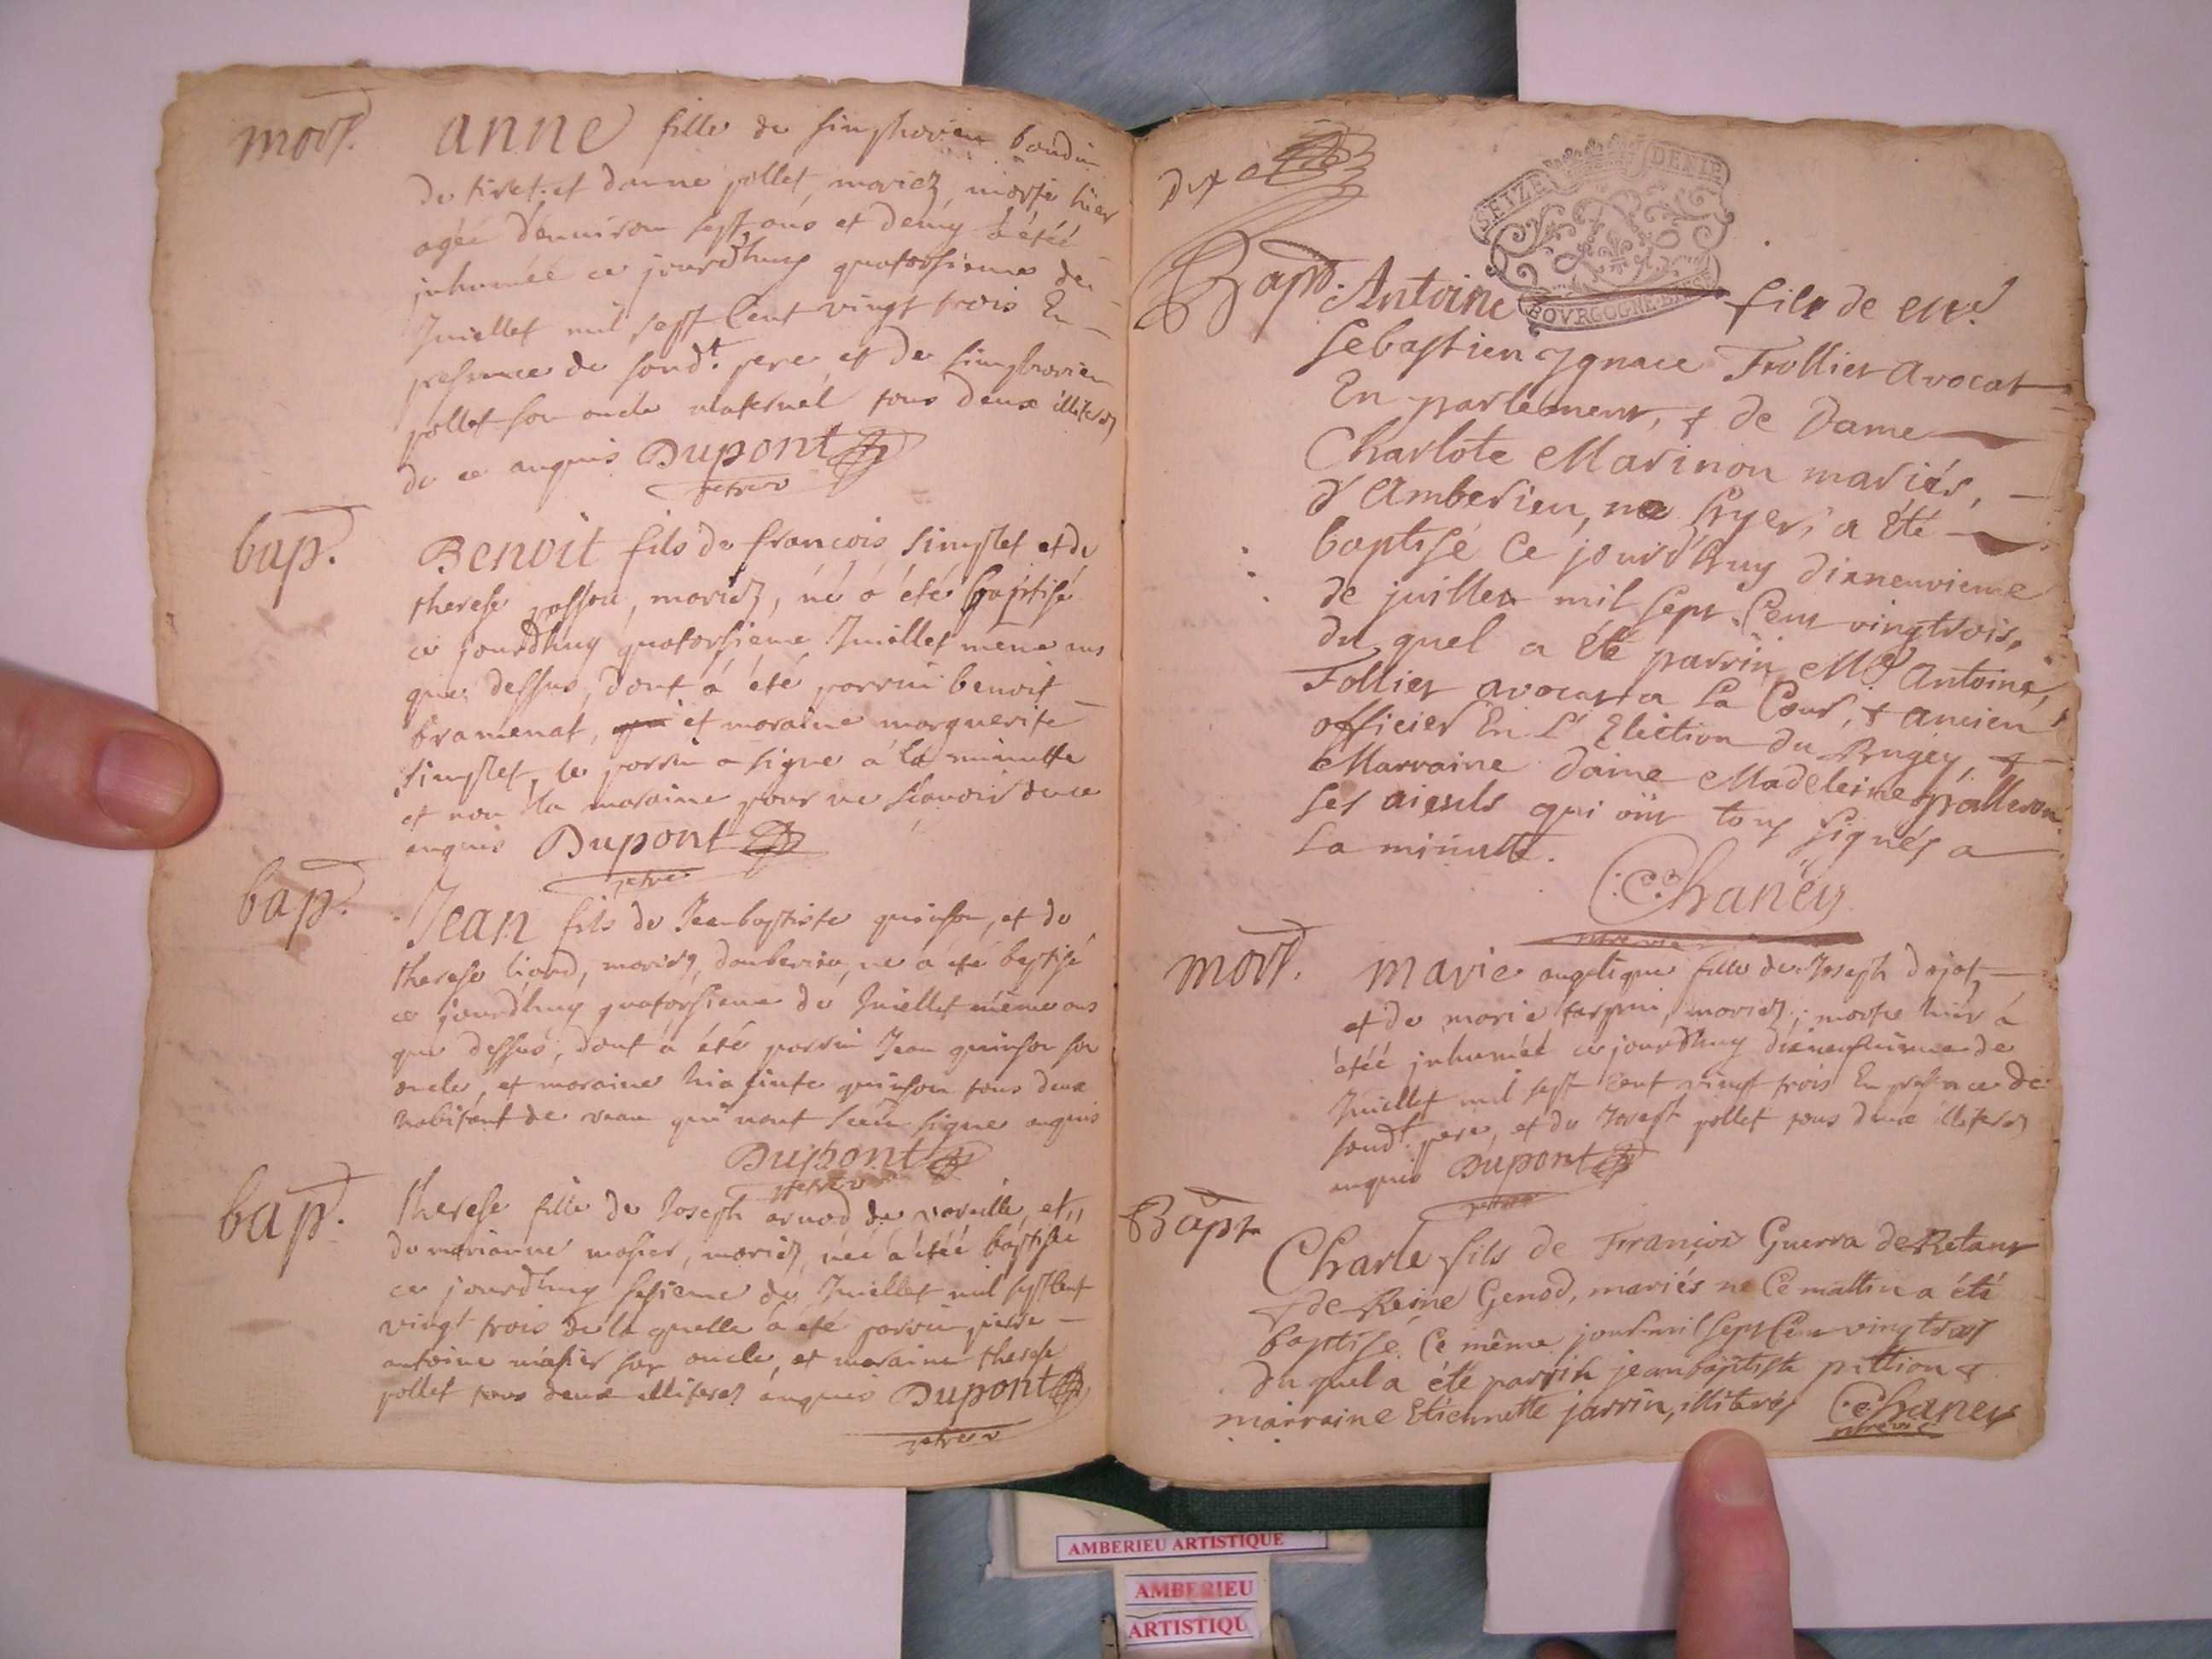 mort. anne fille de simphorien boudin
de tiret et danne pollet, mariez, morte hier
agée d'environ sept ans et demy a étéé
inhumée ce jourdhuy quatorsieme de
Juiellet mil sept Cent vingt trois En
presence de sond.t pere et de simphorien
pollet son oncle maternel tous deux illiterez
de ce anquis Dupont
pretre v
bap. Benoit fils de francois simplet et de
therese, mariez, né a été baptisé
ce jourdhuy quatorsieme Juiellet meme ans
que dessus, dont a été parrin benoit
bramenat, et maraine marguerite
simplet, le parrin a signé a la minutte
et non la maraine pour ne scavoir de ce
enquis Dupont
pretre
bap. Jean fils de Jean baptiste quinson, et de
therese liard, mariez, damberieu, né a été baptisé
ce jourdhuy quatorsieme de Juiellet même ans
que dessus, dont a été parrin Jean quinson son
oncle, et maraine hiasinte quinson tous deux
habitant de vaux qui nont sceu signe anquis
Dupont
pretre v
bap. therese fille de Joseph arnod de vareille, et
de marianne masier, mariez, née a étéé baptisée
ce jourdhuy sesieme de Juiellet mil sept Cent
vingt trois de la quelle a été parrin pierre
antoine masier son oncle, et maraine therese
pollet tous deux illiterez enquis Dupont
pretre v
dix
SEIZE DENIE
BOURGOGNE BRESSE
Bapt. Antoine fils de Me
Sebastien Ygnace Trollier avocat
En parlement, & de Dame
Charlote Marinon mariés,
d'Amberieu, né hyer, a été
baptisé Ce jourd'huy dixneuvieme
de juillet mil Sept Cent vingtrois,
du quel a été parrin Me Antoine
Tollier avocat a la Cour, & ancien
officier En L'Election du Bugey, &
Marraine dame Madeleine
ses aieuls qui ont tous signés a
la minute.
Chaney
pretre vic
mort. marie angelique fille de Joseph dejat
et de marie tarpin, mariez, morte hier a
étéé inhumée ce jourdhuy dixneufvieme de
Juiellet mil sept Cent vingt trois En presence de
sond.t pere, et de Joseph pollet tous deux illiterez
enquis Dupont
pretre
Bapt Charle fils de François Guerra de Retanr
& de Reine Genod, mariés né Ce mattin a été
baptisé Ce même jour mil sept Cent vingtrois
du quel a été parrin jeanbaptiste pittion &
marraine Etiennette jarrin, illiterés Chaney
pretre vic
AMBERIEU ARTISTIQUE
AMBERIEU
ARTISTIQU